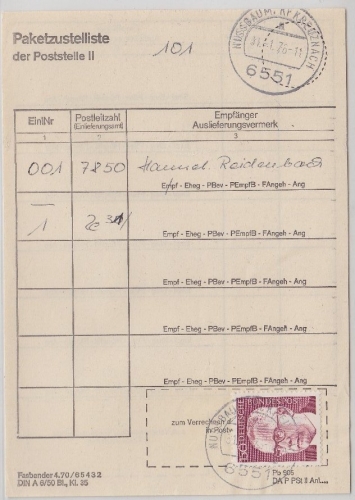 Paketzustelliste
der Poststelle II
101
NUSSBAUM, KR KREUZNACH
6551
EinlNr
Postleitzahl
(Einlieferungsamt)
Empfänger
Auslieferungsvermerk
1
2
3
001 7850
Empf - Eheg - PBev - PEmpfB - FAngeh - Ang
1
Empf - Eheg - PBev - PEmpfB - FAngeh - Ang
Empf - Eheg - PBev - PEmpfB - FAngeh - Ang
Empf - Eheg - PBev - PEmpfB - FAngeh - Ang
Empf - Eheg - PBev - PEmpfB - FAngeh - Ang
Empf - Eheg - PBev - PEmpfB - FAngeh - Ang
zum Verrechnen
in Postw
DEUTSCHE BUNDESPOST
6551
Fasbender 4.70/65432
DIN A 6/50 Bl., Kl. 35
DA P PSt II Anl.